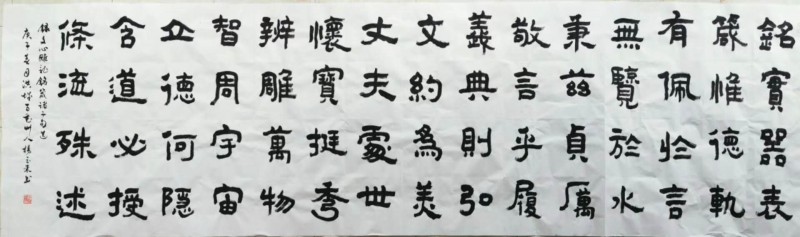 銘實器表
箴惟德軌
有佩於言
無覽於水
秉茲貞厲
敬言乎履
義典則弘
文約為美
丈夫處世
懷寶挺秀
辨雕萬物
智周宇宙
立德何隱
含道必授
條流殊述
錄文心雕龍銘箴諸子句選
庚子夏月書